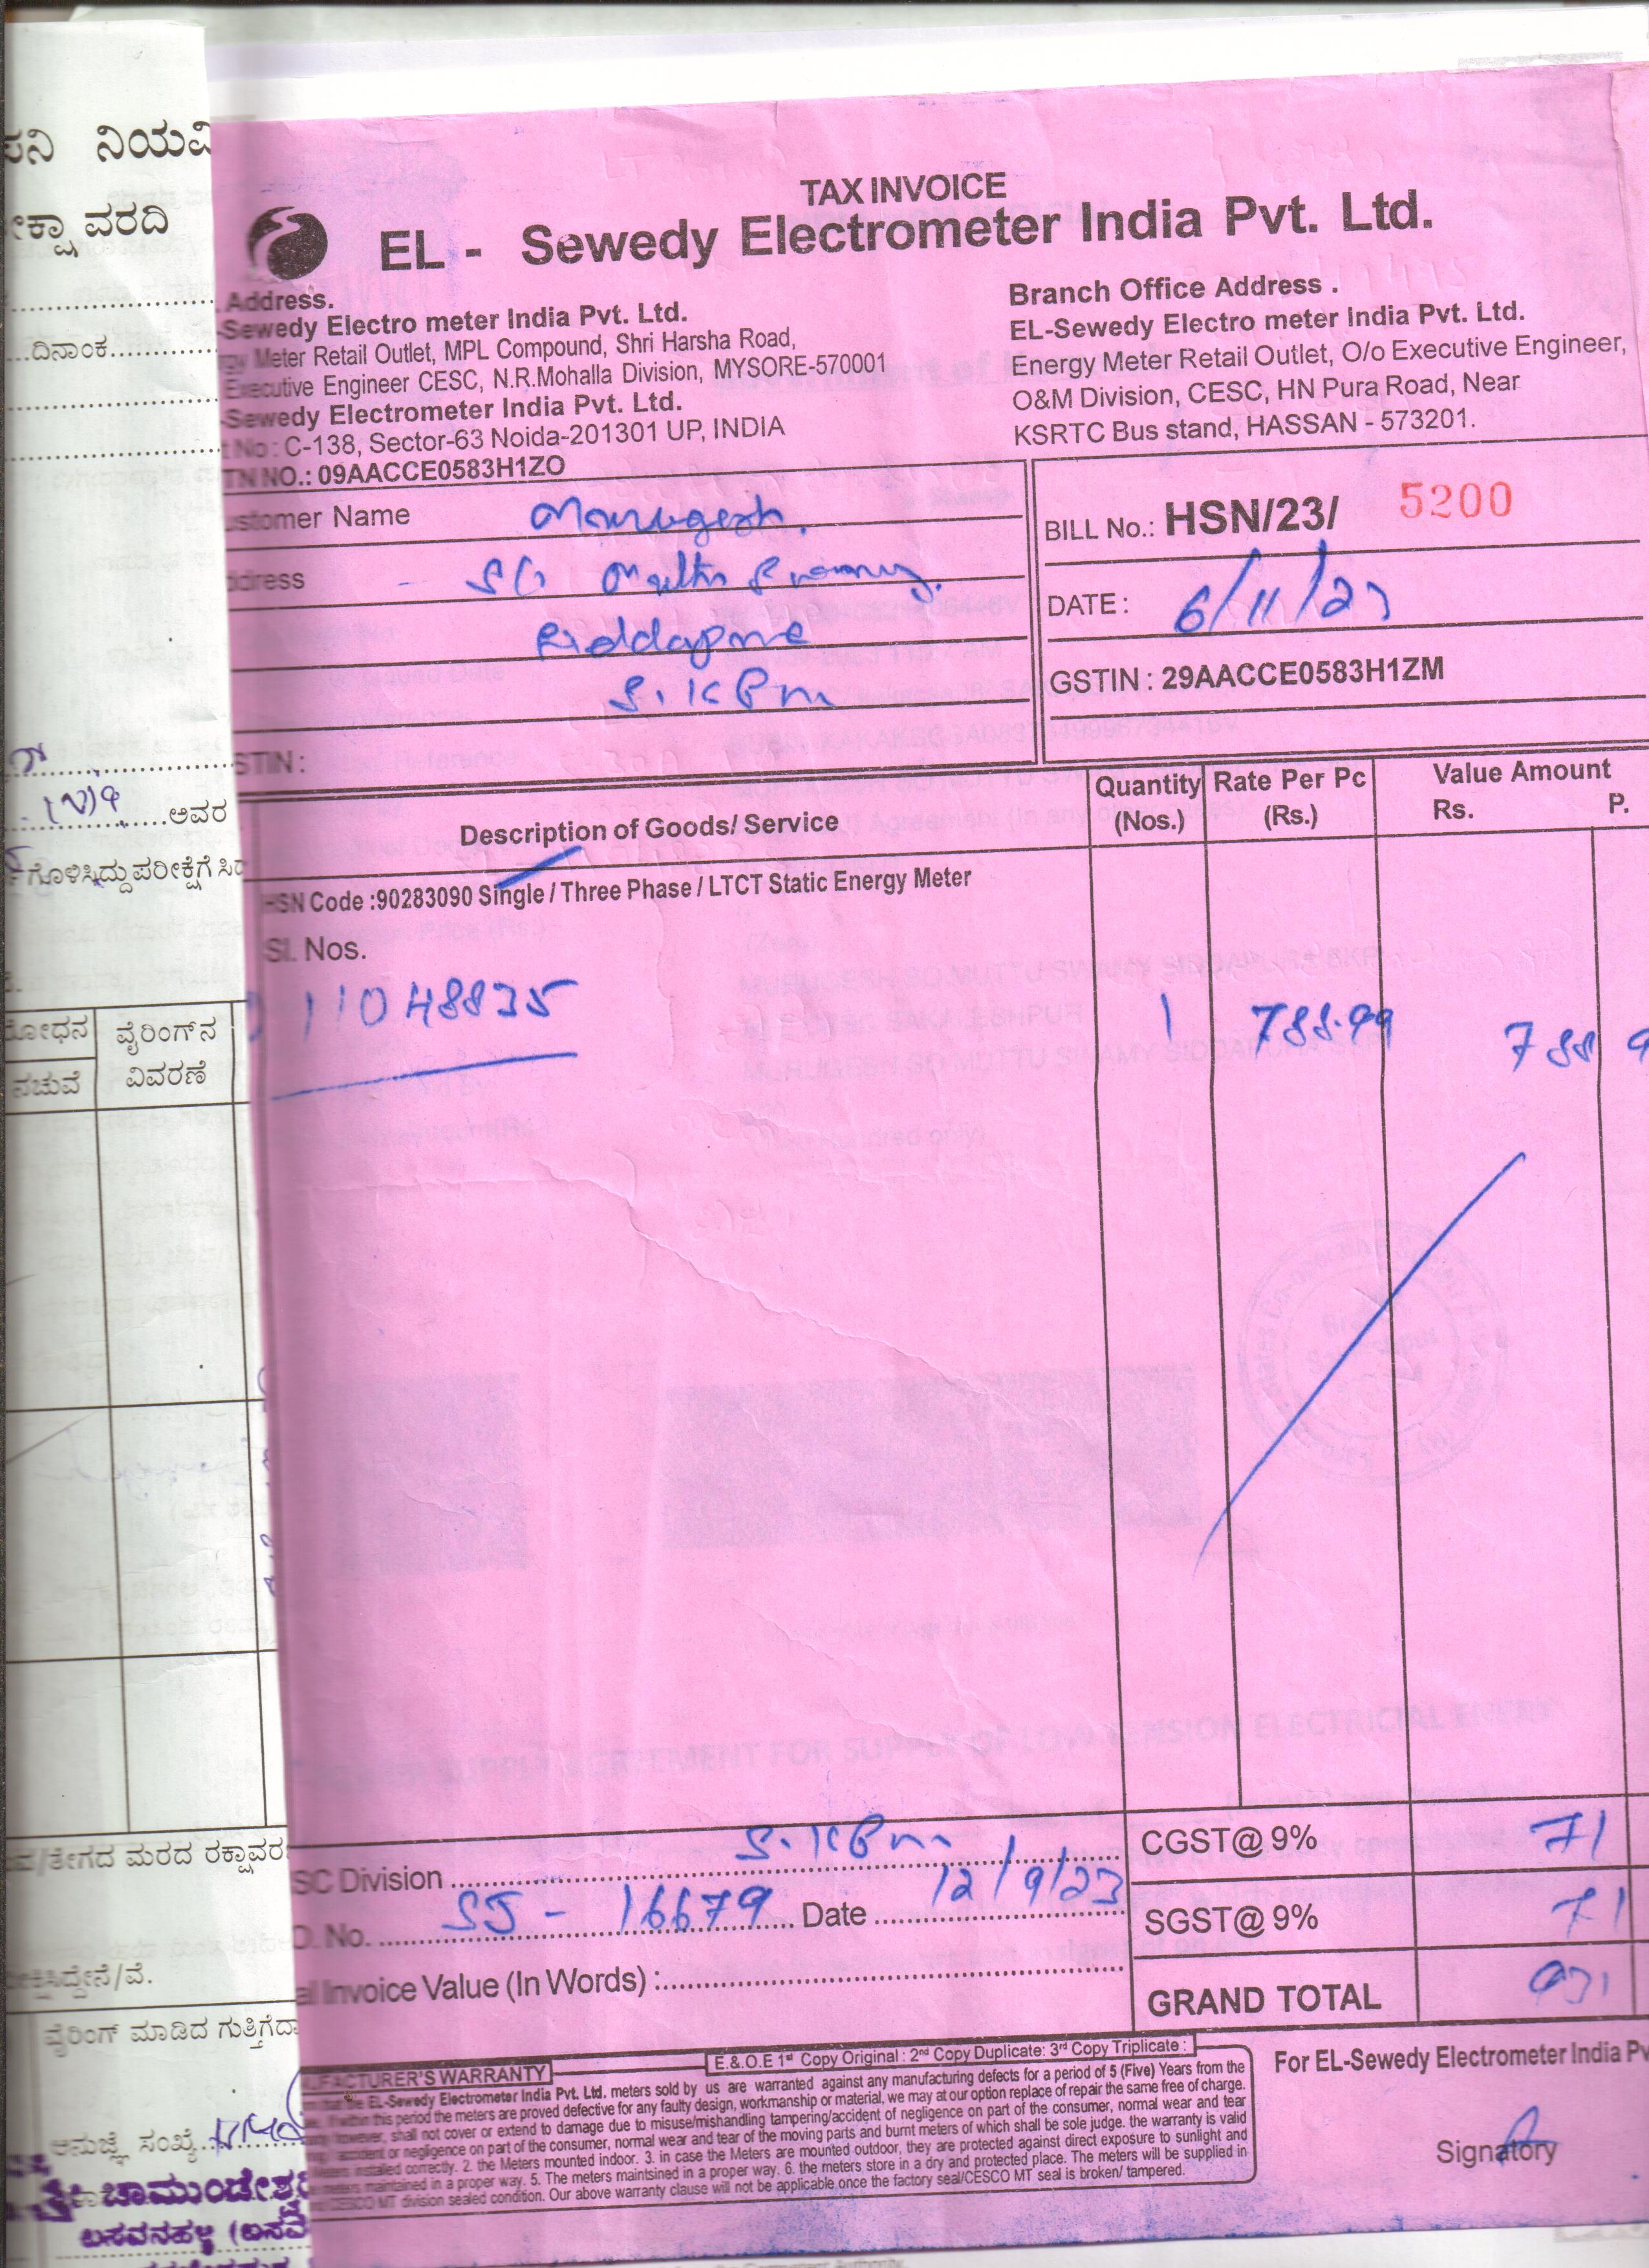 TAX INVOICE
EL - Sewedy Electrometer India Pvt. Ltd.
Address.
Sewedy Electro meter India Pvt. Ltd.
Meter Retail Outlet, MPL Compound, Shri Harsha Road,
Executive Engineer CESC, N.R.Mohalla Division, MYSORE-570001
Sewedy Electrometer India Pvt. Ltd.
No : C-138, Sector-63 Noida-201301 UP, INDIA
TN NO.: 09AACCE0583H1ZO
Branch Office Address .
EL-Sewedy Electro meter India Pvt. Ltd.
Energy Meter Retail Outlet, O/o Executive Engineer,
O&M Division, CESC, HN Pura Road, Near
KSRTC Bus stand, HASSAN - 573201.
stomer Name Murugesh.
ddress
S. K Pm
STIN :
BILL No.: HSN/23/ 5200
DATE : 6/11/23
GSTIN : 29AACCE0583H1ZM
Description of Goods/ Service Quantity (Nos.) Rate Per Pc (Rs.) Value Amount Rs. P.
HSN Code :90283090 Single / Three Phase / LTCT Static Energy Meter
Sl. Nos.
11048835 1 788.99 788 9
SC Division S. K Pm
D. No. SJ - 16679 Date 12/9/23
al Invoice Value (In Words) :
CGST@ 9% 71
SGST@ 9% 71
GRAND TOTAL 931
E.&.O.E 1st Copy Original : 2nd Copy Duplicate: 3rd Copy Triplicate :
UFACTURER'S WARRANTY
EL-Sewedy Electrometer India Pvt. Ltd. meters sold by us are warranted against any manufacturing defects for a period of 5 (Five) Years from the
If within this period the meters are proved defective for any faulty design, workmanship or material, we may at our option replace of repair the same free of charge.
however, shall not cover or extend to damage due to misuse/mishandling tampering/accident of negligence on part of the consumer, normal wear and tear
accident or negligence on part of the consumer, normal wear and tear of the moving parts and burnt meters of which shall be sole judge. the warranty is valid
installed correctly. 2. the Meters mounted indoor. 3. in case the Meters are mounted outdoor, they are protected against direct exposure to sunlight and
meters maintained in a proper way. 5. The meters maintsined in a proper way. 6. the meters store in a dry and protected place. The meters will be supplied in
CESCO MT division sealed condition. Our above warranty clause will not be applicable once the factory seal/CESCO MT seal is broken/ tampered.
For EL-Sewedy Electrometer India Pv
Signatory
ನಿಯಮ
ವರದಿ
ದಿನಾಂಕ
ಅವರ
ಗೊಳಿಸಿದ್ದು ಪರೀಕ್ಷೆಗೆ ಸಿ
ವೈರಿಂಗ್‌ನ
ವಿವರಣೆ
/ತೇಗದ ಮರದ ರಕ್ಷಾವರ
ವೈರಿಂಗ್ ಮಾಡಿದ ಗುತ್ತಿಗೆದಾ
ಅನುಜ್ಞೆ ಸಂಖ್ಯೆ
ಚಾಮುಂಡೇಶ್ವ
ಬಸವನಹಳ್ಳಿ